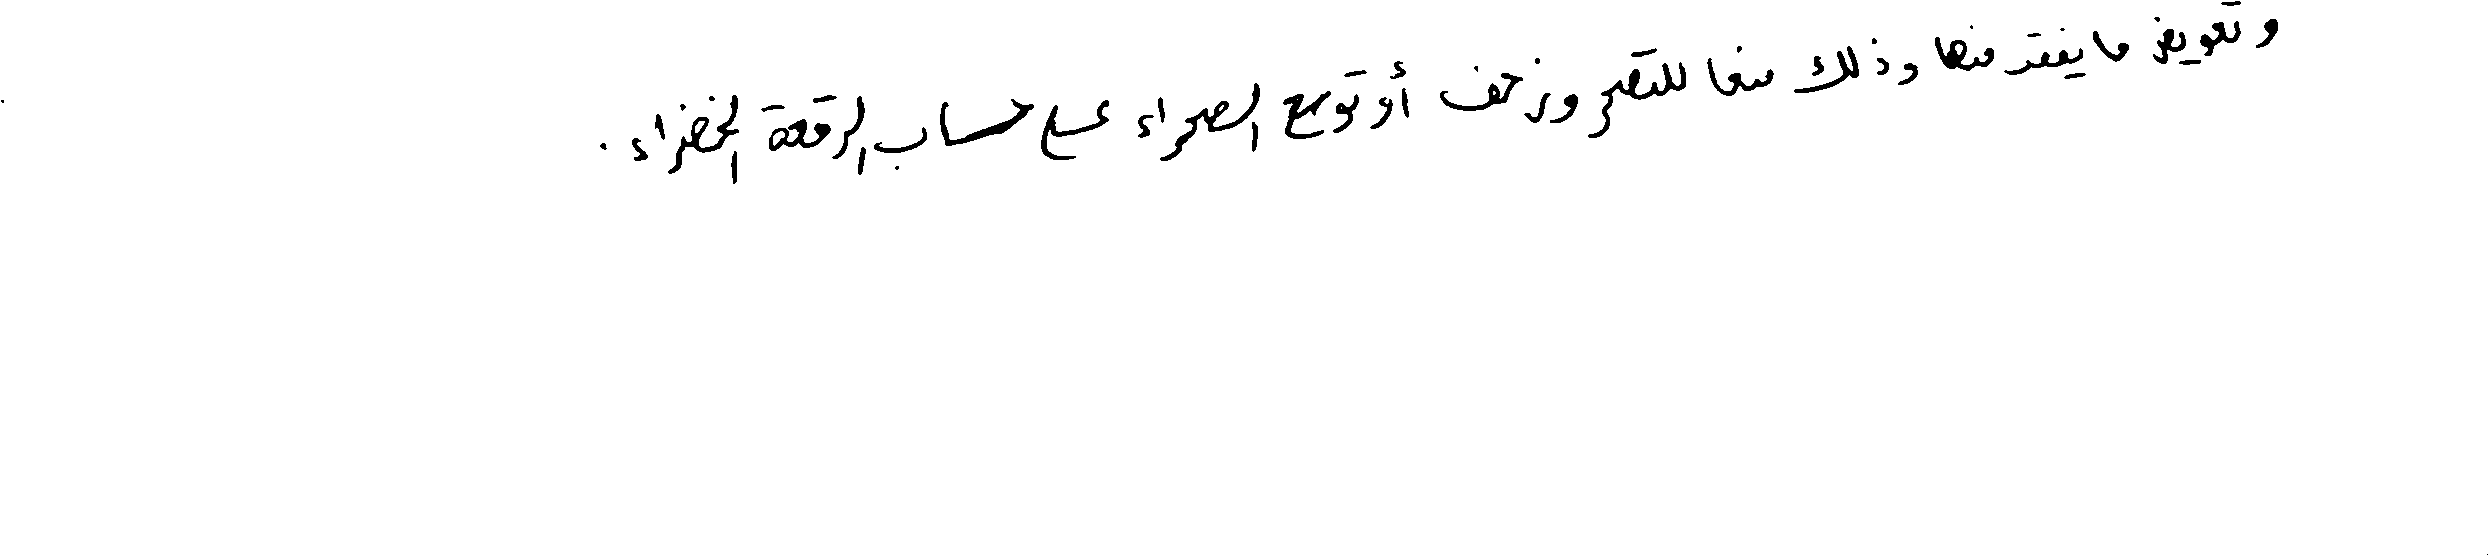 وتعويض ما يفقد منها وذلك منعا للتصحر وزحف أو توسع الصحراء على حساب الرقعة الخضراء .